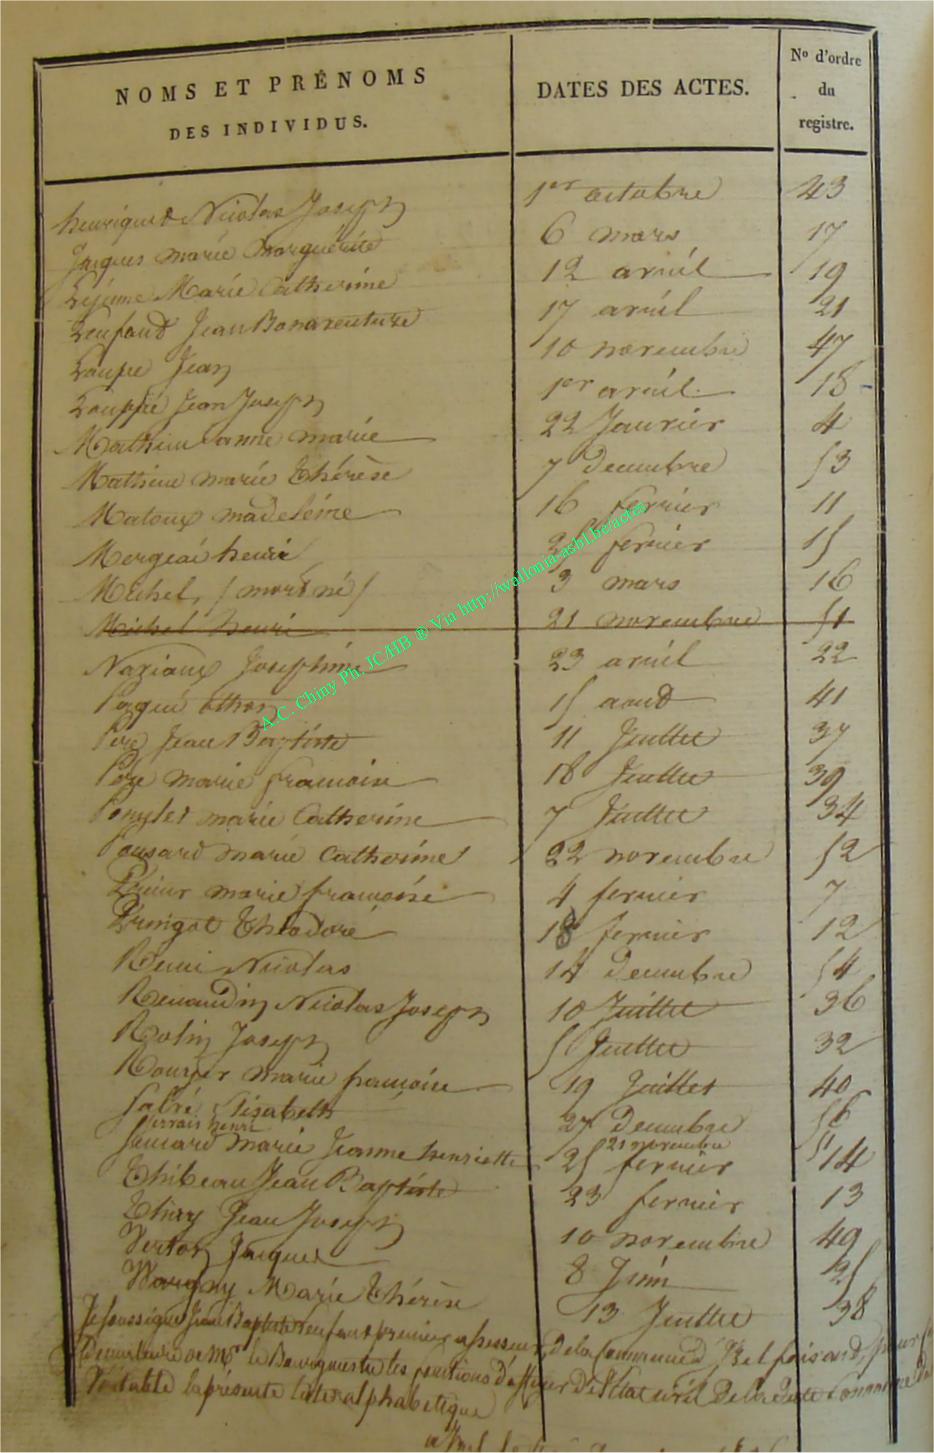 NOMS ET PRÉNOMS DES INDIVIDUS. DATES DES ACTES. No d'ordre du registre.
henriquet Nicolas Joseph 1er octobre 43
Jacques marie marguérite 6 mars 17
Lejeune Marie Catherine 12 avril 19
Lenfand Jean Bonaventure 17 avril 21
Loupe Jean 10 novembre 47
Louppe Jean Joseph 1er avril 18
Mathieu anne marie 22 Janvier 4
Mathieu marie thérèse 7 Decembre 53
Matoux madeleine 16 fevrier 11
Mergeai henri fevrier 15
Michel, (mort né) 3 mars 16
Michel henri 21 novembre 51
Naziaux Josephine 23 avril 22
15 aout 41
Jean Baptiste 11 Juillet 37
marie francoise 18 Juillet 39
Poncelet marie Catherine 7 Juillet 34
Ponsard marie Catherine 22 novembre 52
marie francoise 4 fevrier 7
Pringot théodore 18 fevrier 12
Remi Nicolas 14 Decembre 54
Renaudin Nicolas Joseph 10 Juillet 36
Rolin Joseph 5 Juillet 32
marie francoise 19 Juillet 40
27 Decembre 56
Servais henri 21 novembre 51
marie Jeanne henriette 25 fevrier 14
Thibeau Jean Baptiste 23 fevrier 13
Thiry Jean Joseph 10 novembre 49
Jacques 8 Juin 25
Marie thérèse 13 Juillet 38
Je soussigné Jean Baptiste Lenfant premier assesseur de la Commune d'Izel faisand, pour
de Mr le Bourguemestre les fonctions d'officier de l'Etat civil de la dite Commune
Véritable la présente liste alphabetique
A.C. Chiny Ph. JC/HB ® Via http://wallonia-asbl.be/actes